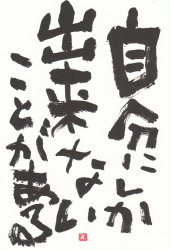 自分にしか
出来ない
ことがある